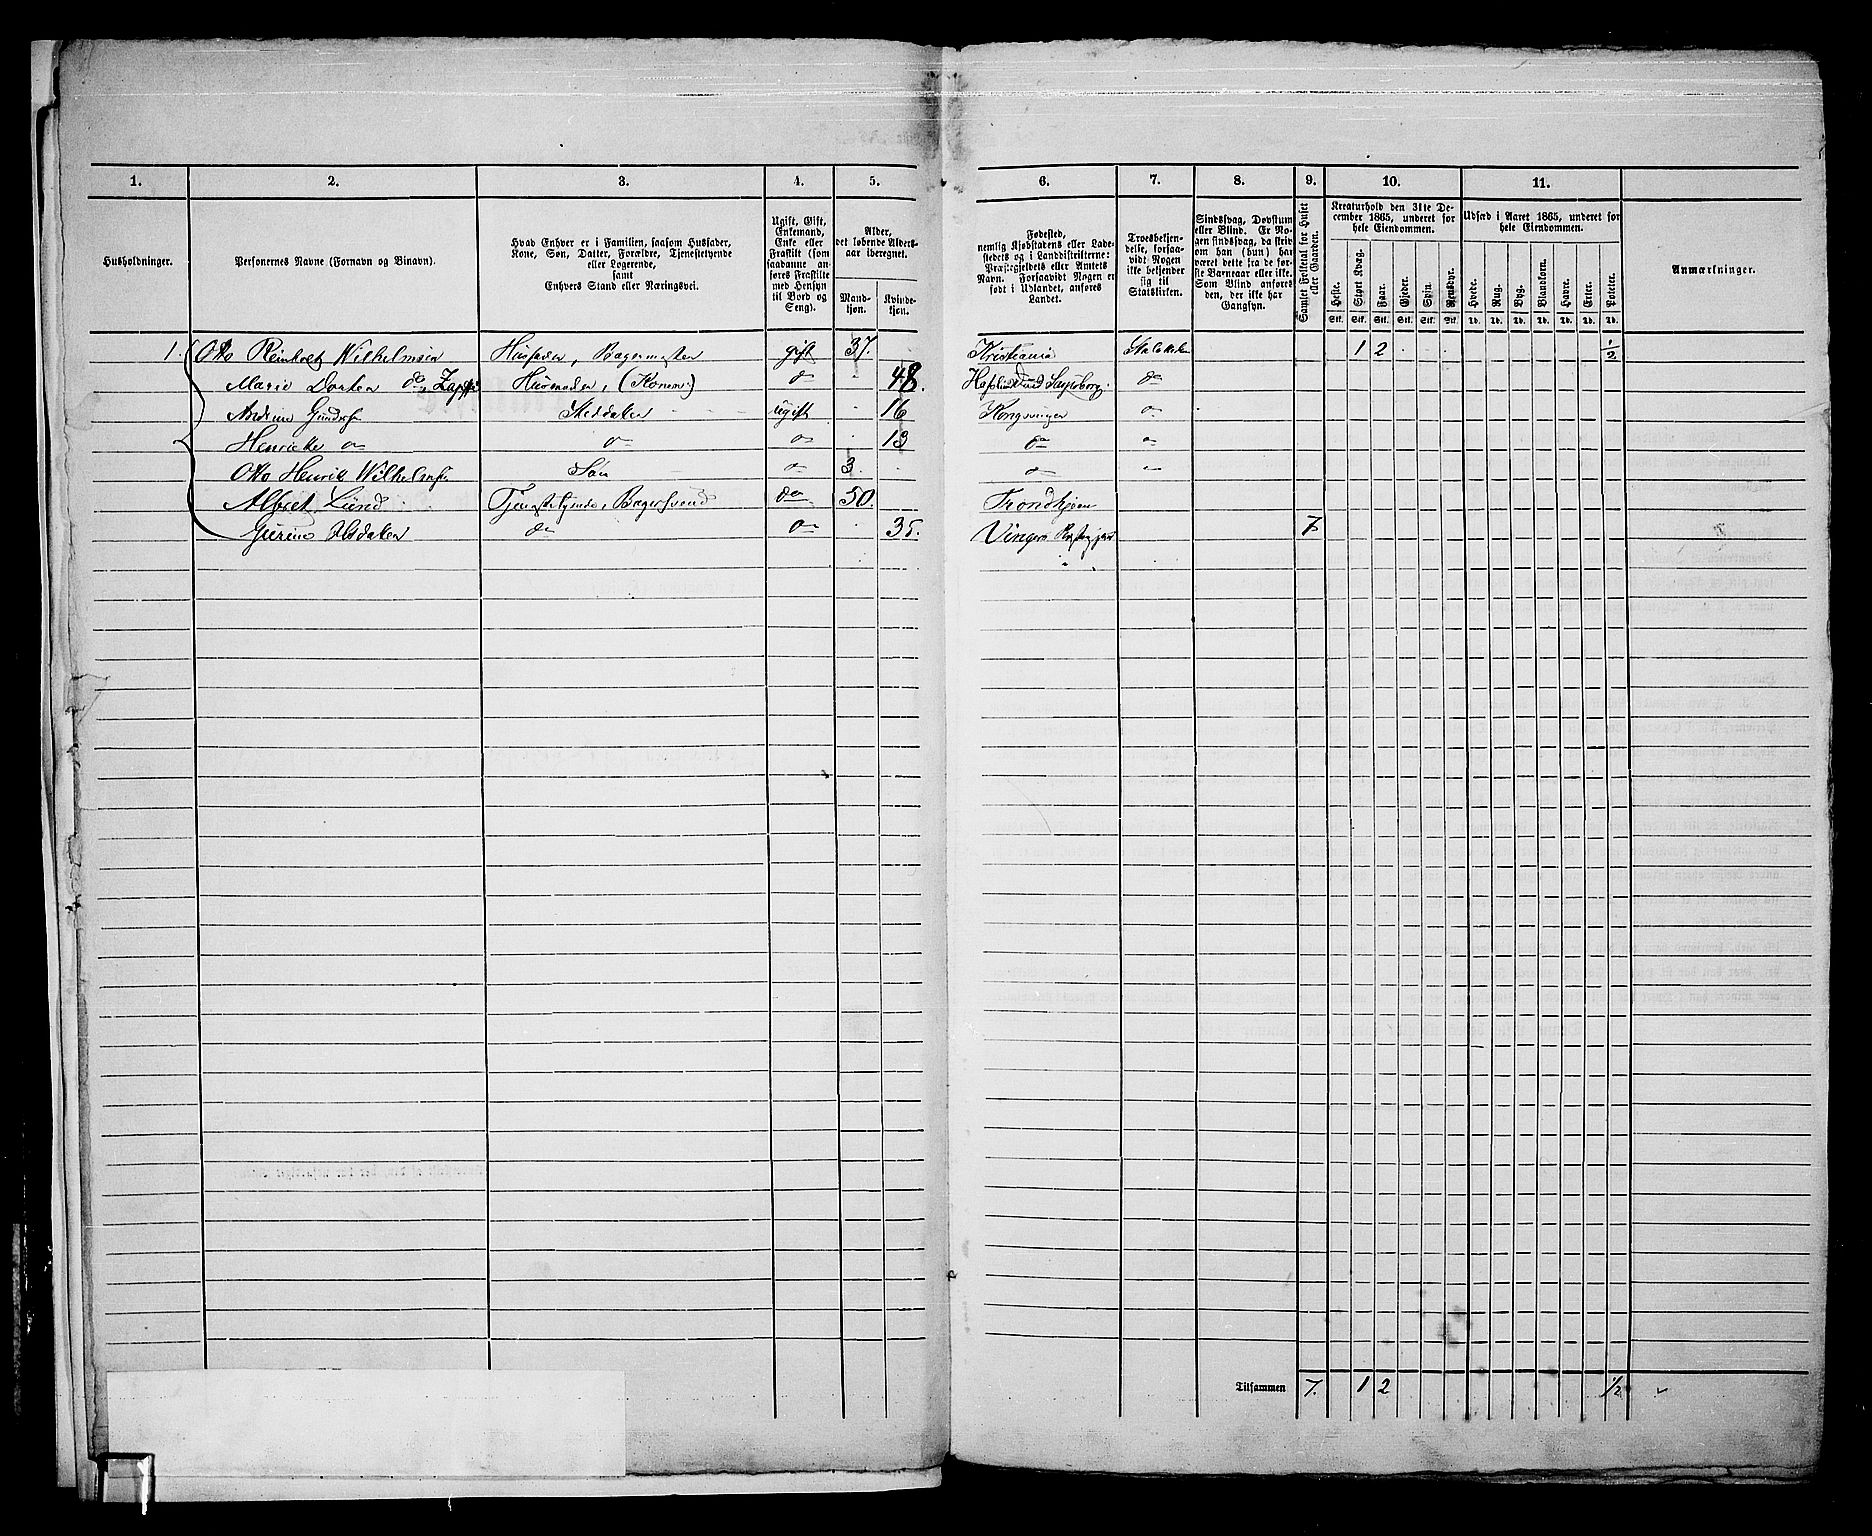 1. 2. 3. 4. 5. 6. 7. 8. 9. 10. 11.
Husholdninger.
Personernes Navne (Fornavn og Binavn).
Hvad Enhver er i Familien, saasom Husfader,
Kone, Søn, Datter, Forældre, Tjenestetyende
eller Logerende,
samt
Enhvers Stand eller Næringsvei.
Ugift, Gift,
Enkemand,
Enke eller
Fraskilt (som
saadanne an-
føres Fraskilte
med Hensyn
til Bord og
Seng).
Alder,
det løbende Alders-
aar iberegnet.
Mand-
kjøn.
Kvinde-
kjøn.
Fødested,
nemlig Kjøbstadens eller Lade-
stedets og i Landdistrikterne:
Præstegjeldets eller Amtets
Navn. Forsaavidt Nogen er
født i Udlandet, anføres
Landet.
Troesbekjen-
delse, forsaa-
vidt Nogen
ikke bekjender
sig til
Statskirken.
Sindssvag, Døvstum
eller Blind. Er No-
gen sindssvag, da skrives
om han (hun) har
været dette fra de før-
ste Barneaar eller ikke.
Som Blind anføres
den, der ikke har
Gangsyn.
Samlet Folketal for Huset
eller Gaarden.
Kreaturhold den 31te De-
cember 1865, underet for
hele Eiendommen.
Heste. Stort Kvæg. Faar. Gjeder. Svin. Rensdyr.
Stk. Stk. Stk. Stk. Stk. Stk.
Udsæd i Aaret 1865, underet for
hele Eiendommen.
Hvede. Rug. Byg. Blandkorn. Havre. Erter. Poteter.
Td. Td. Td. Td. Td. Td. Td.
Anmærkninger.
1. Otto Reinhret Wilhelmsen Husfader, Bagermester gift 37. Kristiania Statskirken 1 2 1/2
Marie Dortea do Husmoder, (Konen) do 48. Hafslund ved Sarpsborg. do
Andrine Steddatter ugift 16 Kongsvinger do
Henriette do do do 13 do do
Otto Henrik Wilhelmsen Søn do 3. do do
Albret Lund Tjenestetyende, Bagersvend do 50. Trondhjem
do do 35. Vingers Præstegjeld 7
Tilsammen 7. 1 2 1/2